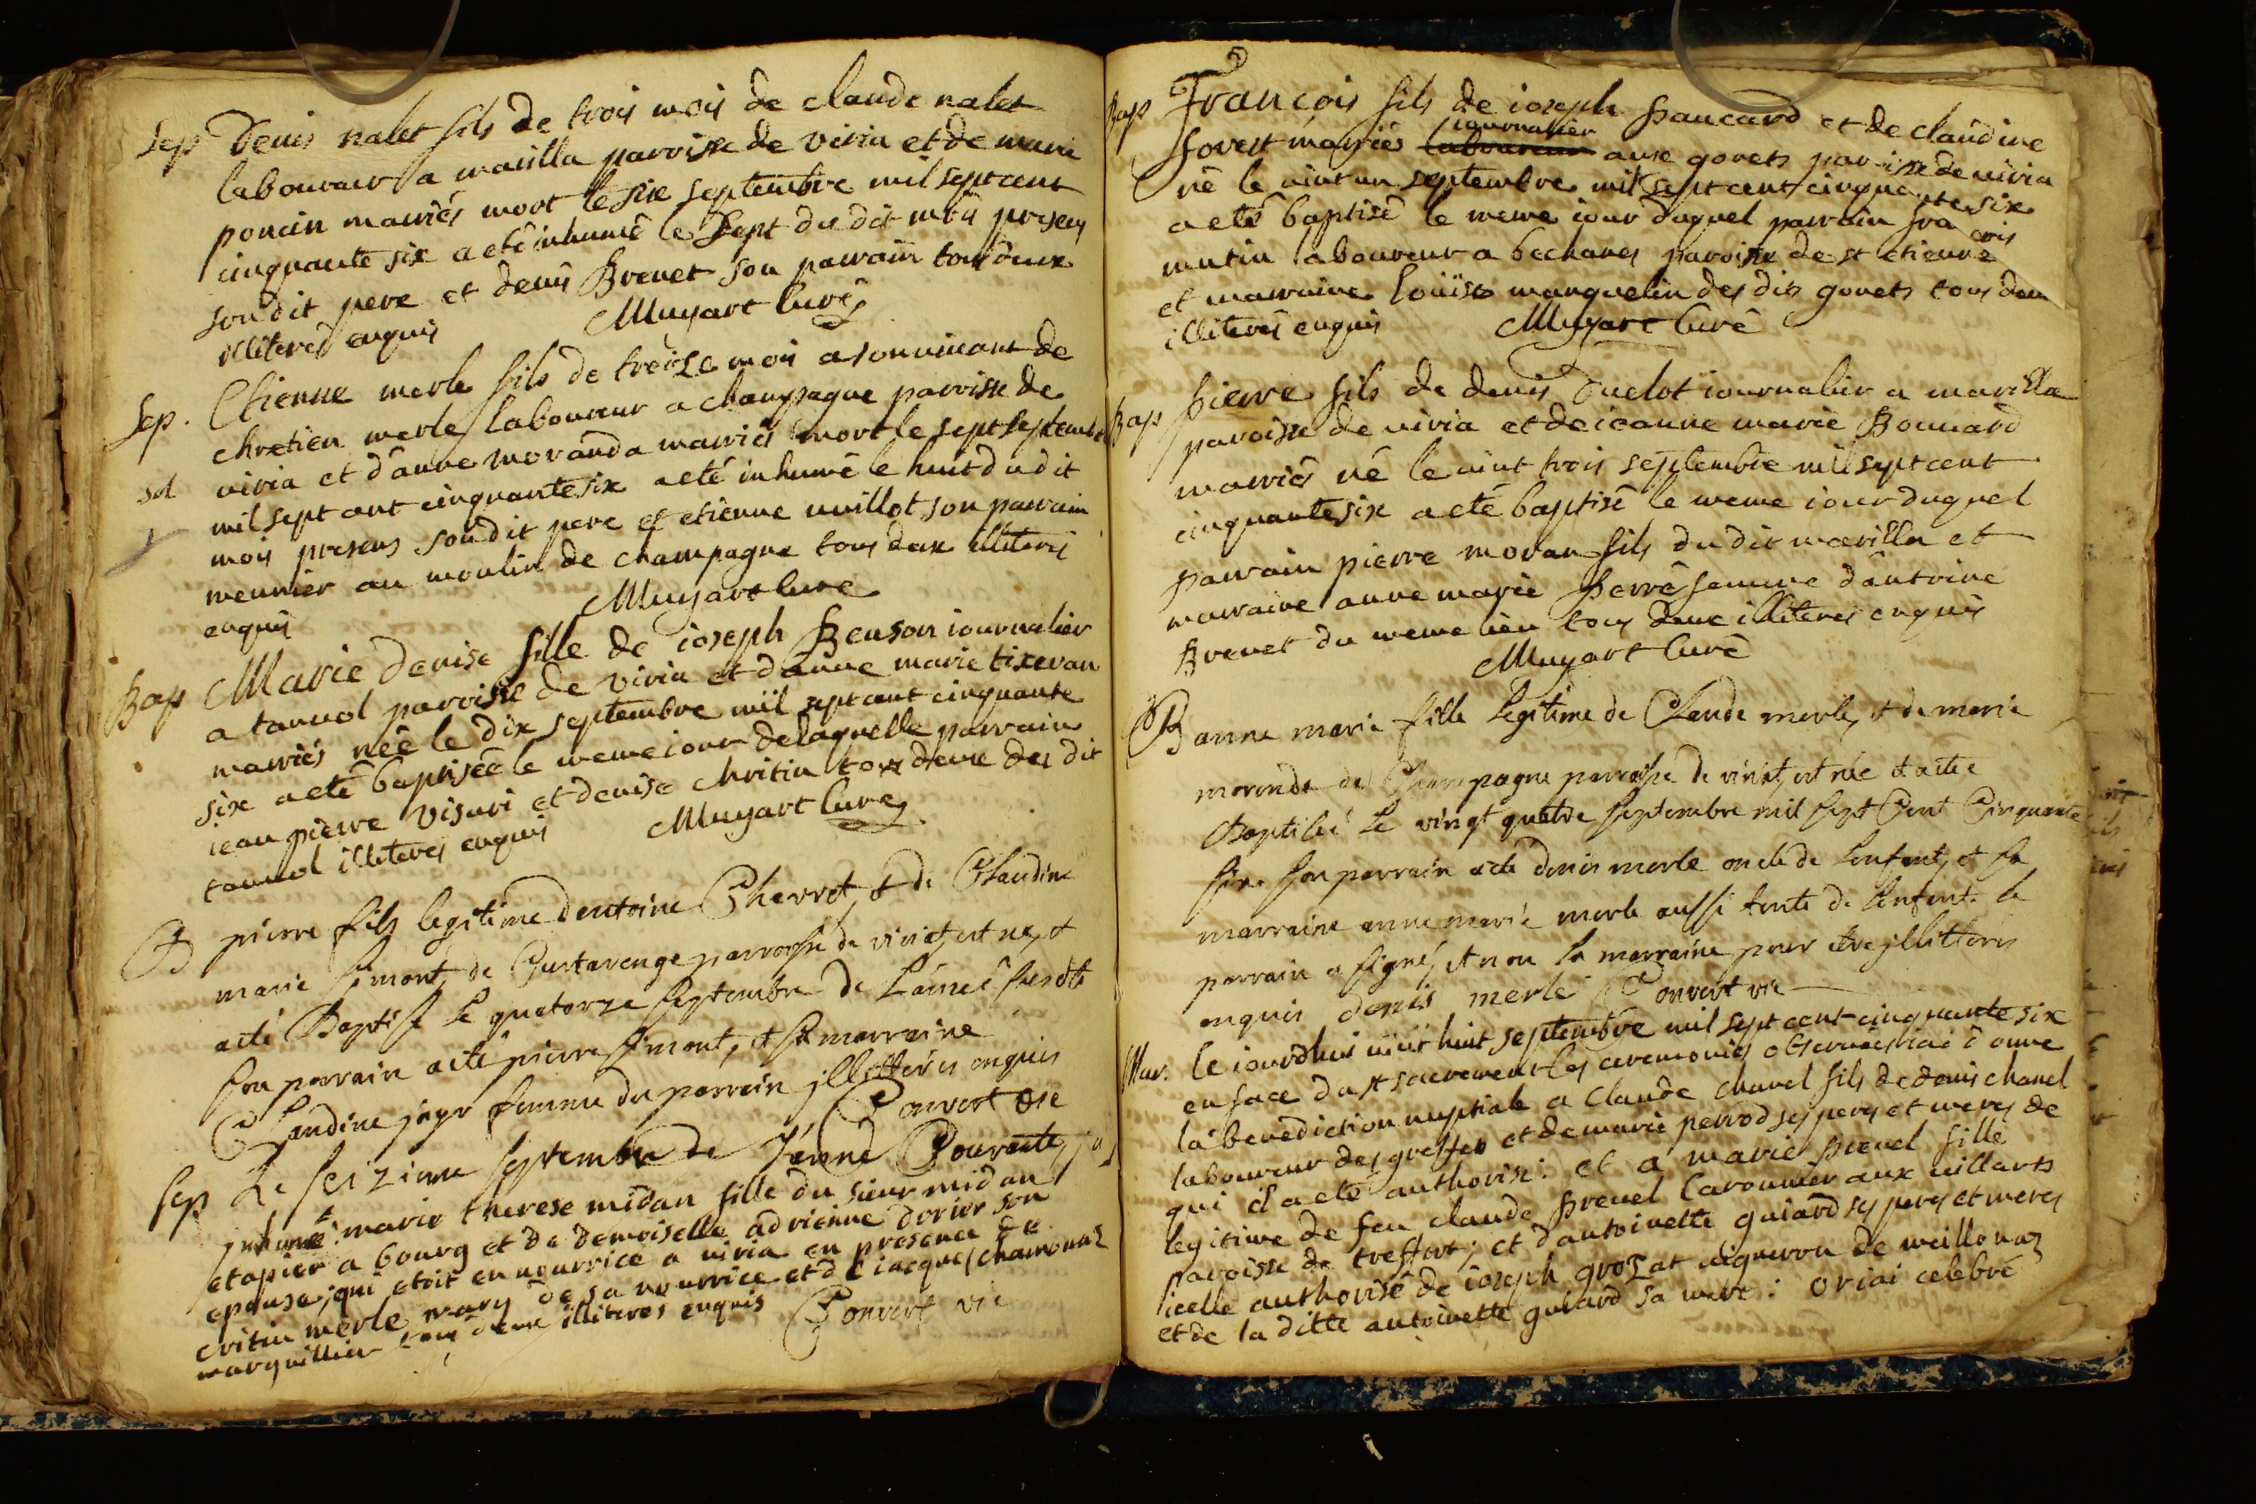 Sep Denis nalet fils de trois mois de claude nalet
laboureur a marilla paroisse de viria et de marie
poncin mariés mort le six septembre mil sept cent
cinquante six a eté inhumé le sept du dit mois presens
son dit pere et denis Brevet son parain tous deux
illiterés enquis Muyart Curé
Sep. Etienne merle fils de treize mois a son vivant de
chretien merle laboureur a champagne paroisse de
viria et d'anne moranda mariés mort le sept septembre
mil sept cent cinquante six a eté inhumé le huit du dit
mois presens son dit pere et etienne vuillot son parrain
meunier au moulin de champagne tous deux illiterés
enquis Muyart Curé
Bap Marie denise fille de ioseph Benson iournalier
a tannol paroisse de viria et d'anne marie tixeran
mariés née le dix septembre mil sept cent cinquante
six a eté baptisée le meme iour de laquelle parrain
iean pierre et denise chritin tous deux des dit
tannol illiterés enquis Muyart Curé
B pierre fils legitime dentoine Cherret, et de Claudine
marie simont, de Curtarenge parroisse de viriat, est né, et
a eté Baptisé le quatorze septembre de l'année susdite
son parrain a eté pierre simont, et sa marraine
Claudine femme du parrain jllitterés enquis
Convert vic
Sep Le seizieme septembre de l'année Courante,
jnhumé marie therese midan fille du sieur midan
etapier a bourg et de demoiselle adrienne dorier son
epouse, qui etoit en nourrice a viria en presence de
critin merle mary de sa nourrice et de iacques chamonaz
marguillier tous deux illiteres enquis Convert vic
5
Bap François fils de ioseph Pancard et de claudine
forest mariés laboureur iournalier aux gorets paroisse de viria
né le vint un septembre mil sept cent cinquante six
a eté baptisé le meme iour duquel parrain francois
mutin laboureur a bechanes paroisse de st etienne
et marraine Loüise marquelin des dits gorets tous deux
illiterés enquis Muyart Curé
Bap Pierre fils de denis Duclot iournalier a marilla
paroisse de viria et de ieanne marie Bouvard
mariés né le vint trois septembre mil sept cent
cinquante six a eté baptisé le meme iour duquel
parrain pierre moran fils du dit marilla et
marraine anne marie Perré femme d'antoine
Brevet du meme lieu tous deux illiterés enquis
Muyart Curé
B anne marie fille Legitime de Claude merle, et de marie
moranda de Champagne parroisse de viriat, est née et a eté
Baptisée Le vingt quatre septembre mil sept Cent Cinquante
six son parrain a eté denis merle oncle de L'enfant, et sa
marraine anne marie merle aussi tante de L'enfant. Le
parrain a signé, et non La marraine pour etre jllitteré
enquis denis merle Convert vic
Mar. Le iourdhui vint huit septembre mil sept cent cinquante six
en face du st sacrement les ceremonies observées iai donné
la benediction nuptiale a claude chanel fils de denis chanel
laboureur des greffes et de marie perrod ses peres et meres de
qui il a eté authorisé: et a marie Prevel fille
legitime de feu claude Prevel Caronnier aux uillarts
paroisse de treffort; et d'antoinette guiard ses peres et meres
icelle authorisé de ioseph grozat uigneron de meillonaz
et de la ditte antoinette guiard sa mere: or iai celebré